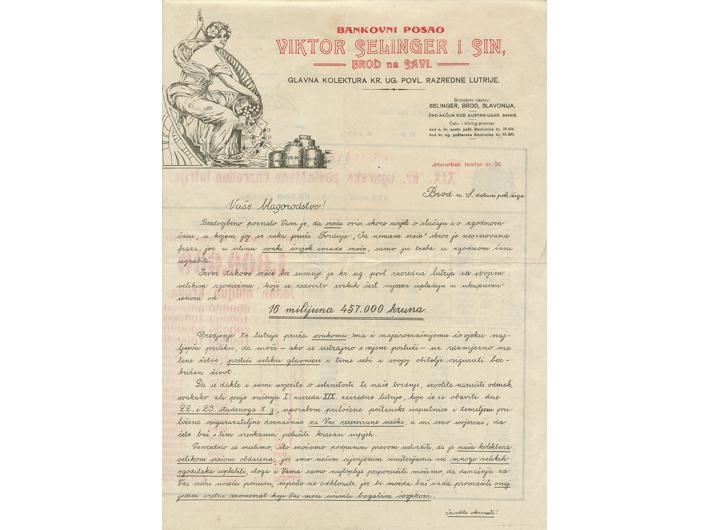 BANKOVNI POSAO
VIKTOR SELINGER i SIN,
BROD na SAVI.
GLAVNA KOLEKTURA KR. UG. POVL. RAZREDNE LUTRIJE.
Brzojavni naslov:
SELINGER, BROD, SLAVONIJA.
ŽIRO-RAČUN KOD AUSTRO-UGAR. BANKE.
Ček- i kliring-promet
Interurban telefon br. 26.
Brod n. S. datum pošt. žiga
Vaše blagorodstvo!
Bezdvojbeno poznato Vam je, da sreća ovisi skoro uvjek o slučaju i o zgodnom
času, u kojem joj se ruka pruži. Tvrdnja, „Ja nemam sreće" skroz je neosnovana
fraza, jer u istinu svaki čovjek imade sreće, samo ju treba u zgodnom času
ugrabiti.
Izvor takove sreće bez sumnje je kr. ug. povl. razredna lutrija sa svojim
velikim zgodicima koji se redovito svakih šest mjeseci uplaćuju u ukupnom
iznosu od
16 milijuna 457.000 kruna.
Uredjenje te lutrije pruža svakomu, ma i najsiromašnijemu čovjeku naj-
ljepšu priliku, da može - ako se ustrajno s njom posluži - uz razmjerno ma-
lene žrtve, podići veliku glavnicu i time sebi i svojoj obitelji osigurati bez-
brižan život.
Da se dakle i sami uvjerite o istinitosti te naše tvrdnje, izvolite naručiti odmah,
svakako ali prije vučenja I. razreda XIX. razredne lutrije, koje će se obaviti dne
22. i 23. studenoga t. g., uporabom priložene poštanske naputnice i temeljem pri-
ložene osiguravateljne doznačnice za Vas rezervirane srećke, a mi smo uvjereni, da
ćete baš s tim srećkama polučiti krasan uspjeh.
Vanredno se veselimo, što možemo podpunim pravom ustvrditi, da je naša kolektura
velikom srećom obdarena, jer smo našim cijenjenim mušterijama već mnogo velikih
zgoditaka uplatili, stoga i Vama samo najtoplije preporučiti možemo, da današnju za
Vas sreću noseću ponudu, nipošto ne odklonite, jer bi možda baš sada promašili onaj
jedini sretni momenat koji Vas može učiniti bogatim čovjekom.
Izvolite okrenuti!